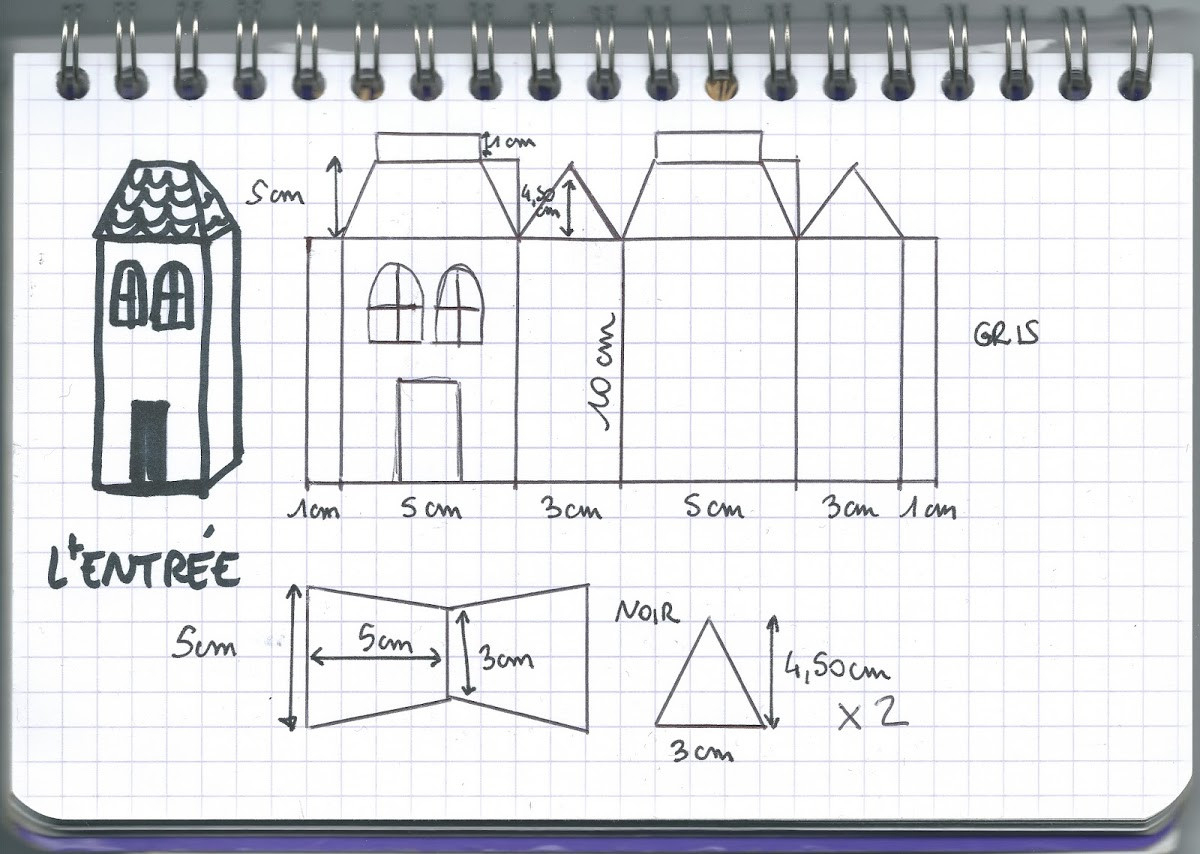 1cm
5cm
4,50
cm
10 cm
GRIS
1cm
5cm
3cm
5cm
3cm
1cm
L'ENTRÉE
5cm
5cm
3cm
NOIR
4,50cm
x 2
3cm